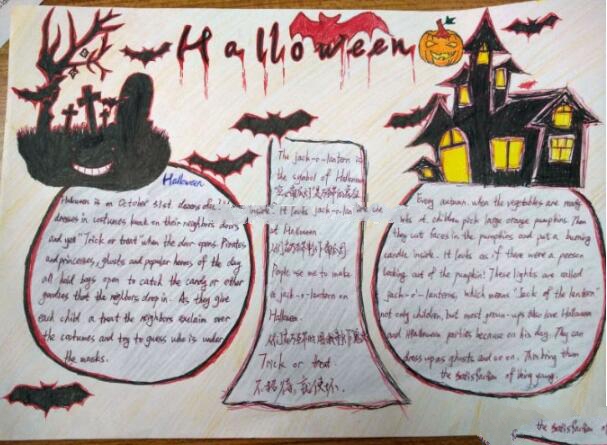 Halloween
Halloween
Halloween is on October 31st
dresses in costumes knock on their neighbors doors
and yell "Trick or treat" when the door opens. Pirates
and princesses, ghosts and popular heroes of the day
all hold bags open to catch the candy or other
goodies that the neighbors drop in. As they give
each child a treat the neighbors exclaim over
the costumes and try to guess who is under
the masks.
The jack-o-lantern is
the symbol of Halloween
inside". It looks jack-o-lan
at Halloween
People use me to make
a jack-o-lantern on
Halloween.
Trick or treat
不招待,就使坏.
Every autumn when the vegetables are ready
children pick large orange pumpkins. Then
they cut faces in the pumpkins and put a burning
candle inside. It looks as if there were a person
looking out of the pumpkin! These lights are called
jack-o'-lanterns, which means "Jack of the lantern"
not only children, but most grown-ups also love Halloween
and Halloween parties because on his day. They can
dress up as ghosts and so on. This bring them
the satisfaction of being young.
the satisfaction